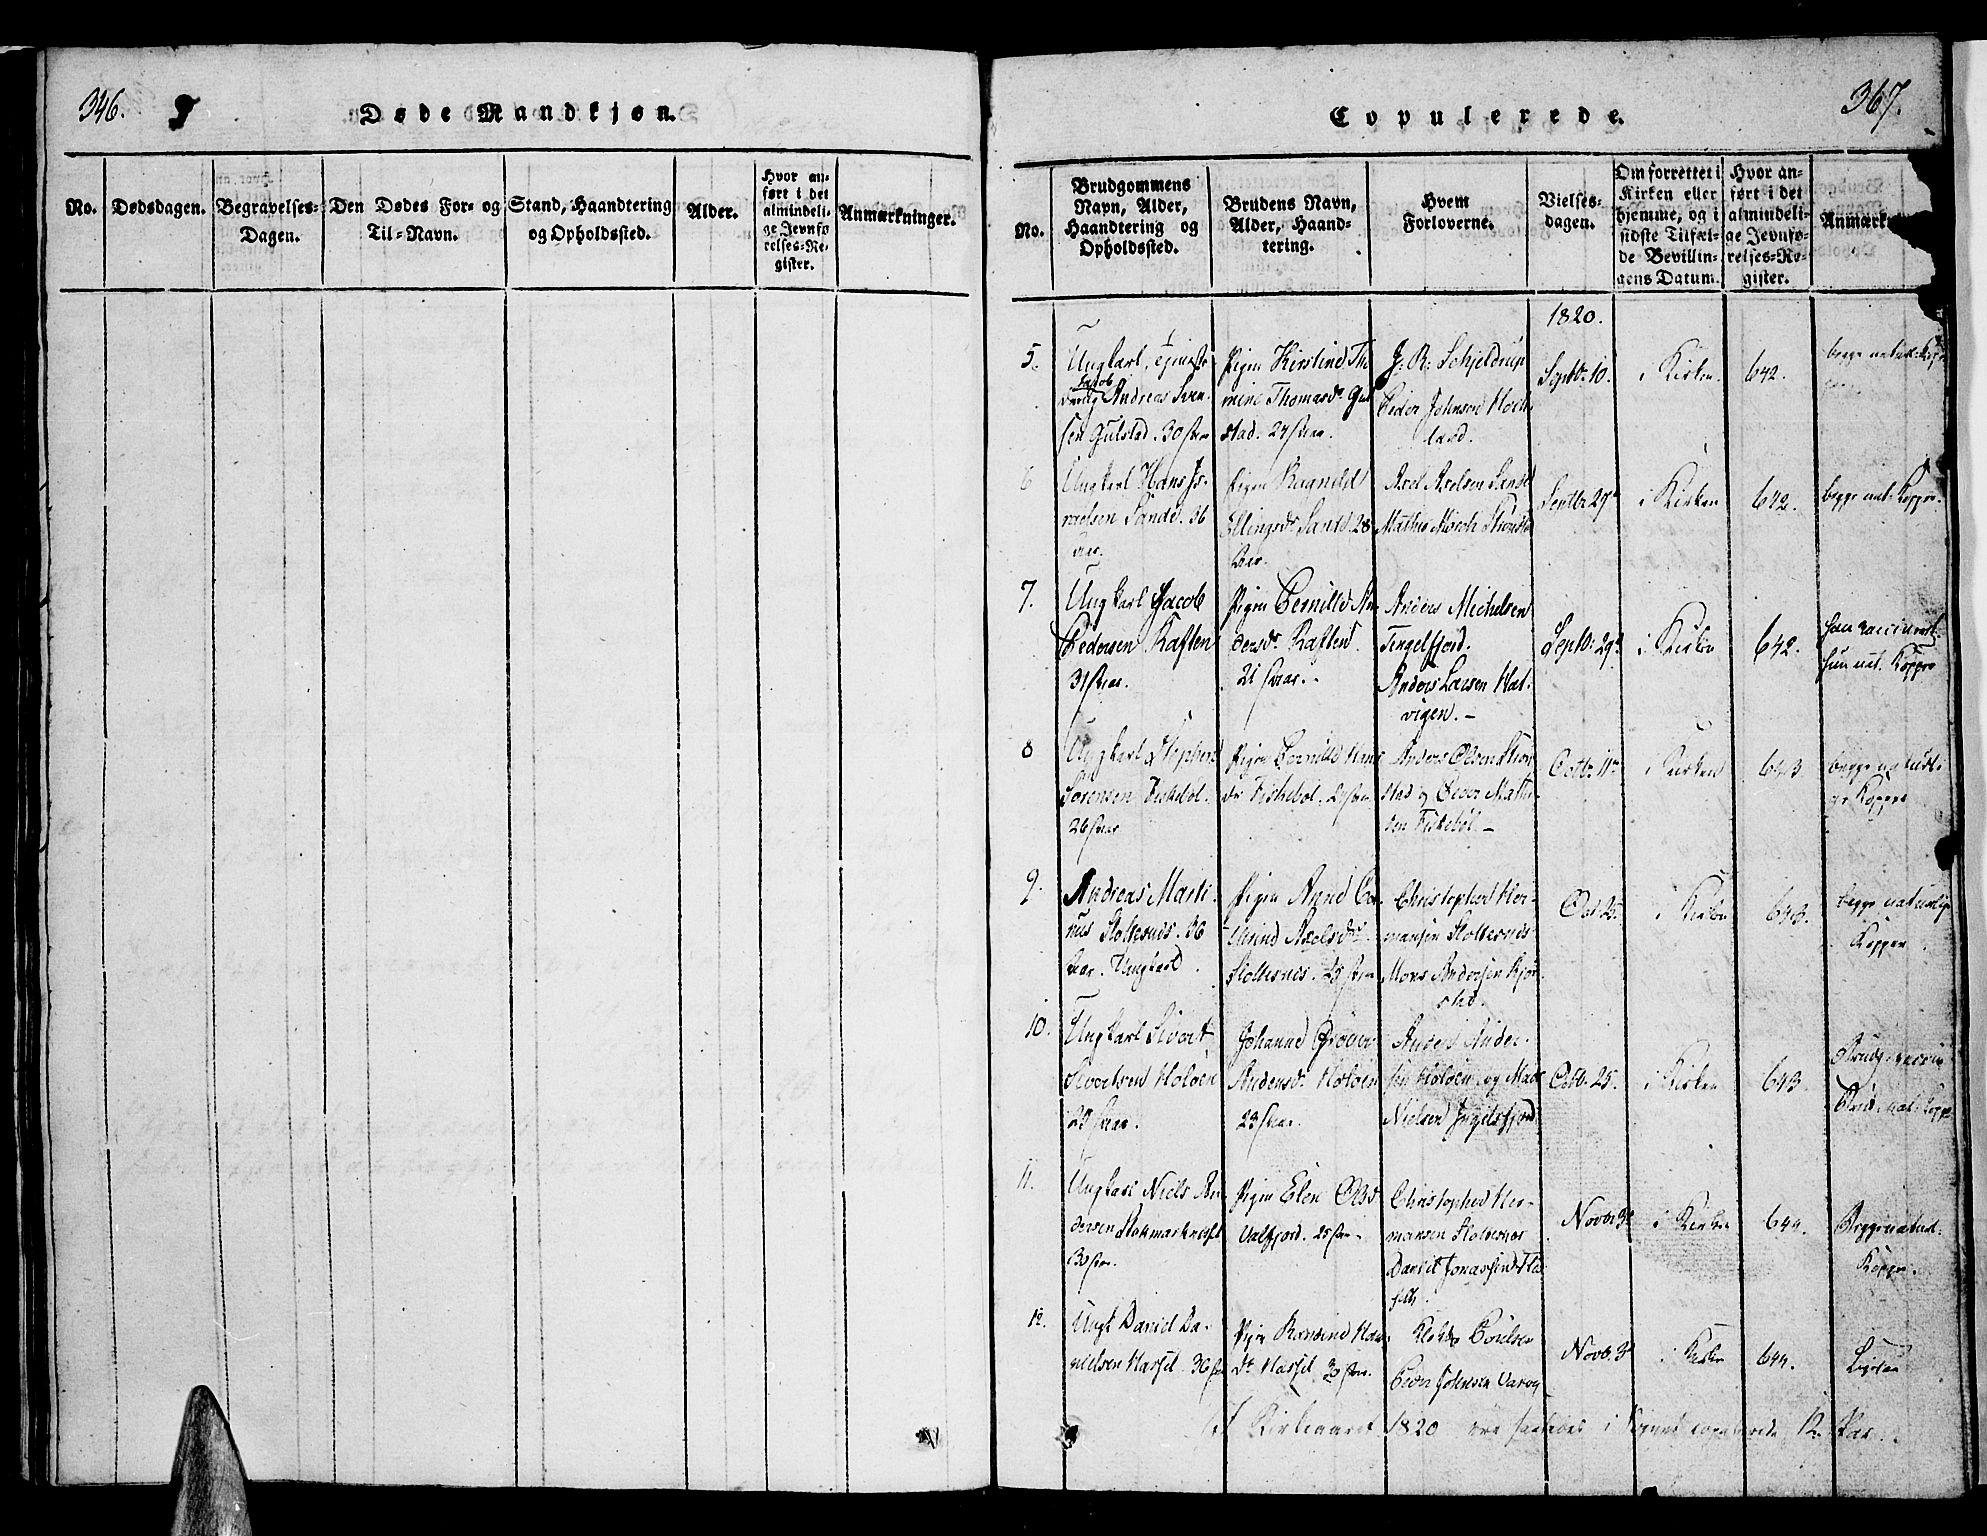 346.
Døde Mandkjøn.
No.
Dødsdagen.
Begravelses-
Dagen.
Den Dødes For- og
Til-Navn.
Stand, Haandtering
og Opholdssted.
Alder.
Hvor an-
ført i det
almindeli-
ge Jevnfø-
relses-Re-
gister.
Anmærkninger.
367.
Copulerede.
No.
Brudgommens
Navn, Alder,
Haandtering og
Opholdssted.
Brudens Navn,
Alder, Haand-
tering.
Hvem
Forloverne.
Vielses-
dagen.
Om forrettet i
Kirken eller
hjemme, og i
sidste Tilfæl-
de Bevillin-
gens Datum.
Hvor an-
ført i det
almindeli-
ge Jevnfø-
relses-Re-
gister.
Anmærk
1820.
5.
Ungkarl,
Jacob
Andreas Sven-
sen Gulstad. 30 Aar
Pigen Kirstine Tho
mine Thomasdr Gul
stad. 24 Aar.
J. R. Schjeldrup
Peder Johnsen Hoch-
land.
Septbr 10.
i Kirken.
642.
begge naturl. Kopper
6
Ungkarl Hans Is-
raelsen Sande. 36
Aar.
Pigen Ragnild
Ellingsdr Sand 28
Aar.
Axel Axelsen Sand
Mathis Morch
Septbr 29de
i Kirken
642.
begge nat. Kopper.
7.
Ungkarl Jacob
Pedersen Raften
31 Aar.
Pigen Pernille An
dersdr Raften.
21 Aar.
Anders Michelsen
Tengelfjord.
Anders Larsen Hat-
vigen.
Septbr 29de
i Kirken
642.
han vaccineret
hun nat. Kopper
8
Ungkarl Stephen
Sørensen Fiskebøl.
26 Aar
Pigen Pernille Hans
dr Fiskebøl. 21 Aar
Anders Olsen
stad og Peder Math
sen Fiskebøl.
Octbr 11te
i Kirken
643
begge naturli
ge Kopper
9.
Andreas Marti-
nus Stolkesnes. 36
Aar. Ungkarl.
Pigen Anne Ca-
thrine Axelsdr
Stokesnes. 25 Aar
Christopher Her-
mansen Stokesnes
Mons Andersen
Oct. 25.
i Kirken
643.
begge naturlige
Kopper.
10.
Ungkarl Sivert
Sivertsen Holden
29 Aar.
Johanne
Andersdr Holden
23 Aar.
Anders Ander-
sen Holden. og Mads
Nielsen Ingelsfjord
Octbr 25.
i Kirken
643.
Brudg. vaccin
Brud. nat. Kopper
11.
Ungkarl Niels An
dersen Stokmarknæs
30 Aar.
Pigen Elen Olsdr
Valfjord. 25 Aar.
Christopher Her-
mansen Stokesnes
Daniel Jonassen
Novbr 3de
i Kirken
644.
Begge naturl.
Kopper.
12.
Ungk. David Da-
nielsen Hassel. 36 Aar
Pigen Hans
Dr Hassel. 30 Aar.
Poulsen
Peder Johnsen
Novb. 3de
i Kirken
644.
Ligesaa
I Kirkeaaret 1820 ere saaledes i Sognet copulerede 12 Par.